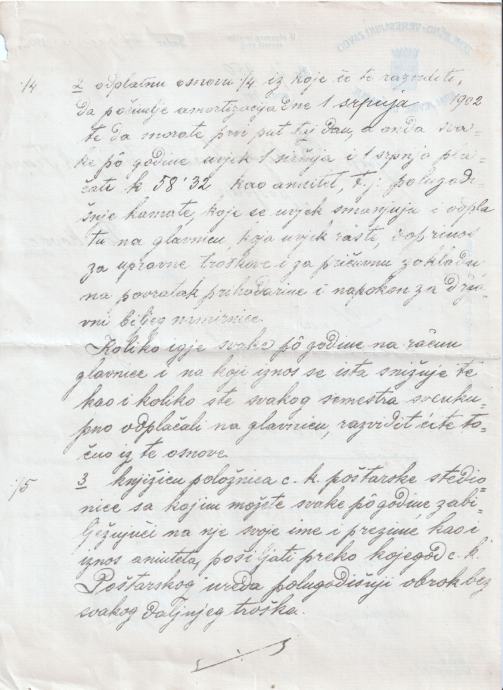 ·/4 2 odplatnu osnovu ·/4 iz koje će te razviditi,
da počimlje amortizacija dne 1 srpnja 1902
te da morate prvi put taj dan, a onda sva-
ke pô godine uvjek 1 siečnja i 1 srpnja pla-
ćati k 58'32 kao anuitet, t.j. polugodi-
šnje kamate, koje se uvjek smanjuju i odpla
tu na glavnicu, koja uvjek rasti, doprinos
za upravne troškove i za pričuvnu zakladu
na povratak prihodarine i napokon za drža
vni biljeg namirnice.
Koliko ide svake pô godine na račun
glavnice i na koji iznos se ista snizuje te
kao i koliko ste svakog semestra sveuku
pno odplaćali na glavnicu, razvidit ćete to-
čno iz te osnove.
·/5 3 knjižicu položnica c. k. poštarske štedio-
nice sa kojim možete svake pô godine zabi-
lježujući na nje svoje ime i prezime kao i
iznos anuiteta, posiljati preko kojegod c. k.
Poštarskog ureda polugodišnji obrok bez
svakog daljnjeg troška.